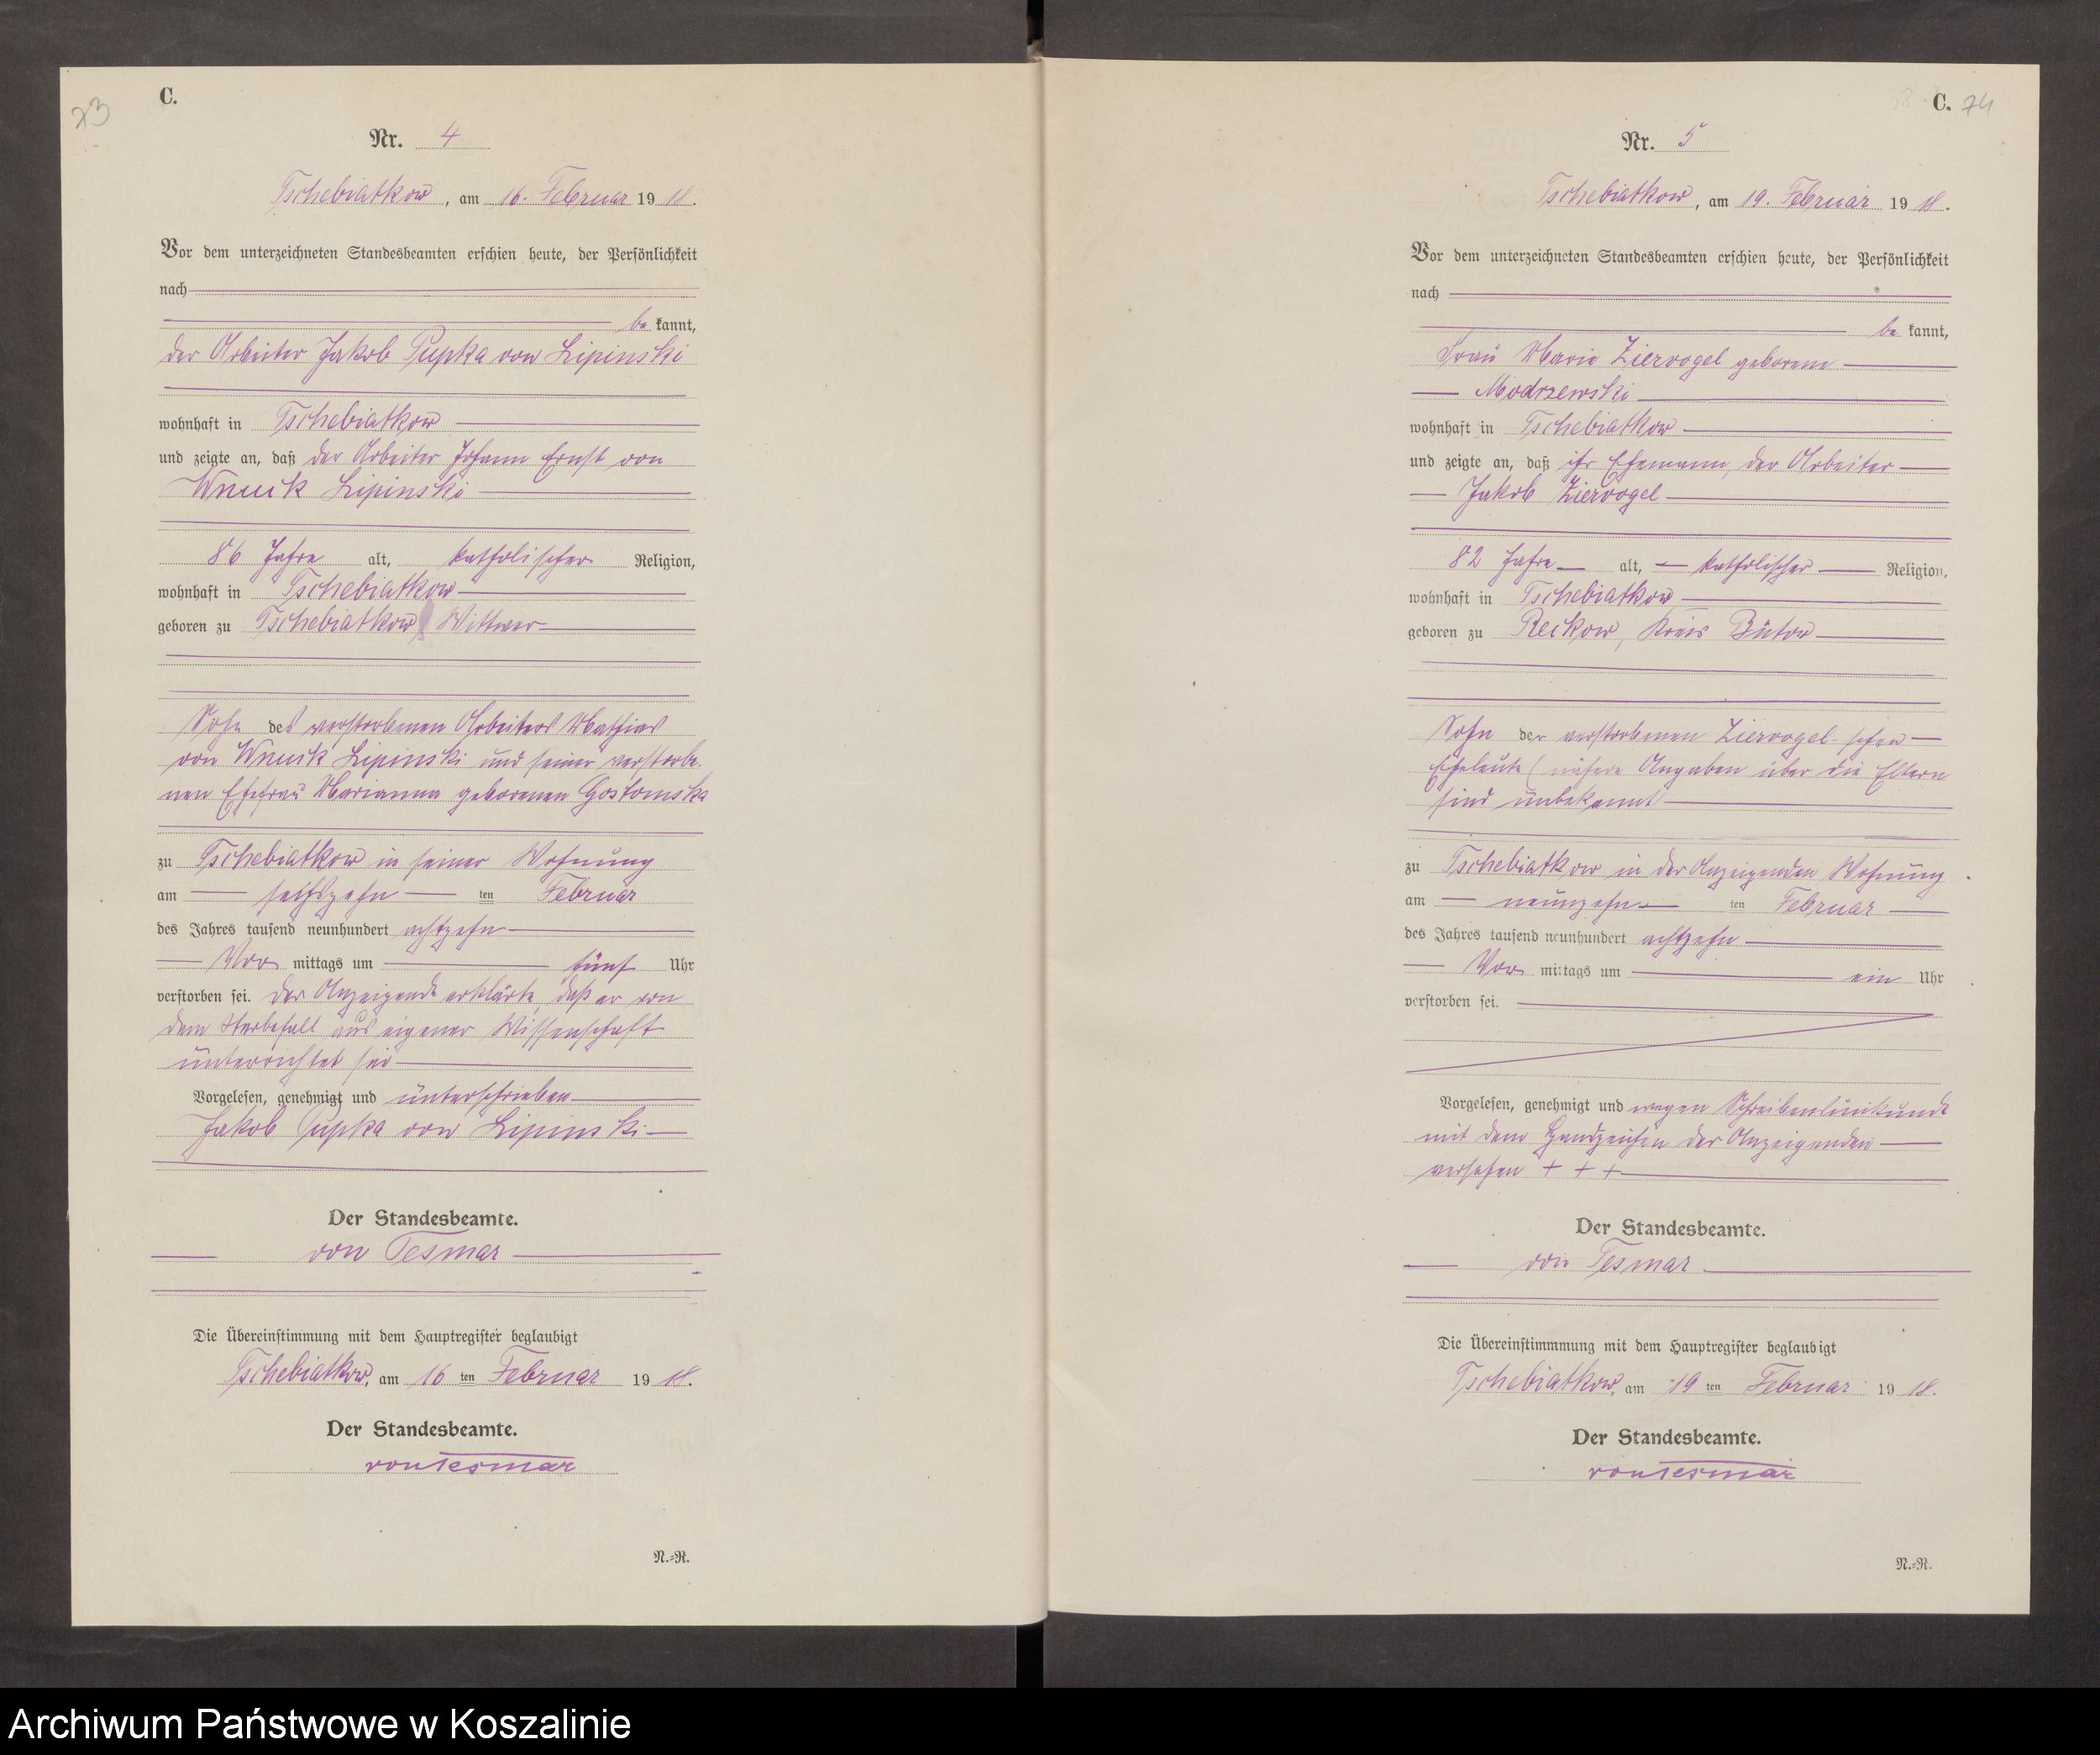 73
C.
Nr. 4
Tschebiatkow, am 16. Februar 19 18.
Vor dem unterzeichneten Standesbeamten erschien heute, der Persönlichkeit
nach
be kannt,
der Arbeiter Jakob Pupka von Lipinski
wohnhaft in Tschebiatkow
und zeigte an, daß der Arbeiter Johann Ernst von
Wnuck Lipinski
86 Jahre alt, katholischer Religion,
wohnhaft in Tschebiatkow
geboren zu Tschebiatkow, Wittwer
Sohn des verstorbenen Arbeiters Mathias
von Wnuck Lipinski und seiner verstorbe-
nen Ehefrau Marianna geborenen Gostomska
zu Tschebiatkow in seiner Wohnung
am sechszehn ten Februar
des Jahres tausend neunhundert achtzehn
Vor mittags um fünf Uhr
verstorben sei. Der Anzeigende erklärte, daß er von
dem Sterbefall aus eigener Wissenschaft
unterrichtet sei
Vorgelesen, genehmigt und unterschrieben
Jakob Pupka von Lipinski
Der Standesbeamte.
von Tesmar
Die Übereinstimmung mit dem Hauptregister beglaubigt
Tschebiatkow, am 16 ten Februar 19 18.
Der Standesbeamte.
von Tesmar
N.=R.
C. 74
Nr. 5
Tschebiatkow, am 19. Februar 19 18.
Vor dem unterzeichneten Standesbeamten erschien heute, der Persönlichkeit
nach
be kannt,
Frau Marie Ziervogel geborene
Modrzewski
wohnhaft in Tschebiatkow
und zeigte an, daß ihr Ehemann, der Arbeiter
Jakob Ziervogel
82 Jahre alt, katholischer Religion,
wohnhaft in Tschebiatkow
geboren zu Reckow, Kreis Bütow
Sohn der verstorbenen Ziervogel-schen
Eheleute (nähere Angaben über die Eltern
sind unbekannt
zu Tschebiatkow in der Anzeigenden Wohnung
am neunzehn ten Februar
des Jahres tausend neunhundert achtzehn
Vor mittags um ein Uhr
verstorben sei.
Vorgelesen, genehmigt und wegen Schreibenunkunde
mit dem Handzeichen der Anzeigenden
versehen + + +
Der Standesbeamte.
von Tesmar
Die Übereinstimmmung mit dem Hauptregister beglaubigt
Tschebiatkow, am 19 ten Februar 19 18.
Der Standesbeamte.
von Tesmar
N.=R.
Archiwum Państwowe w Koszalinie